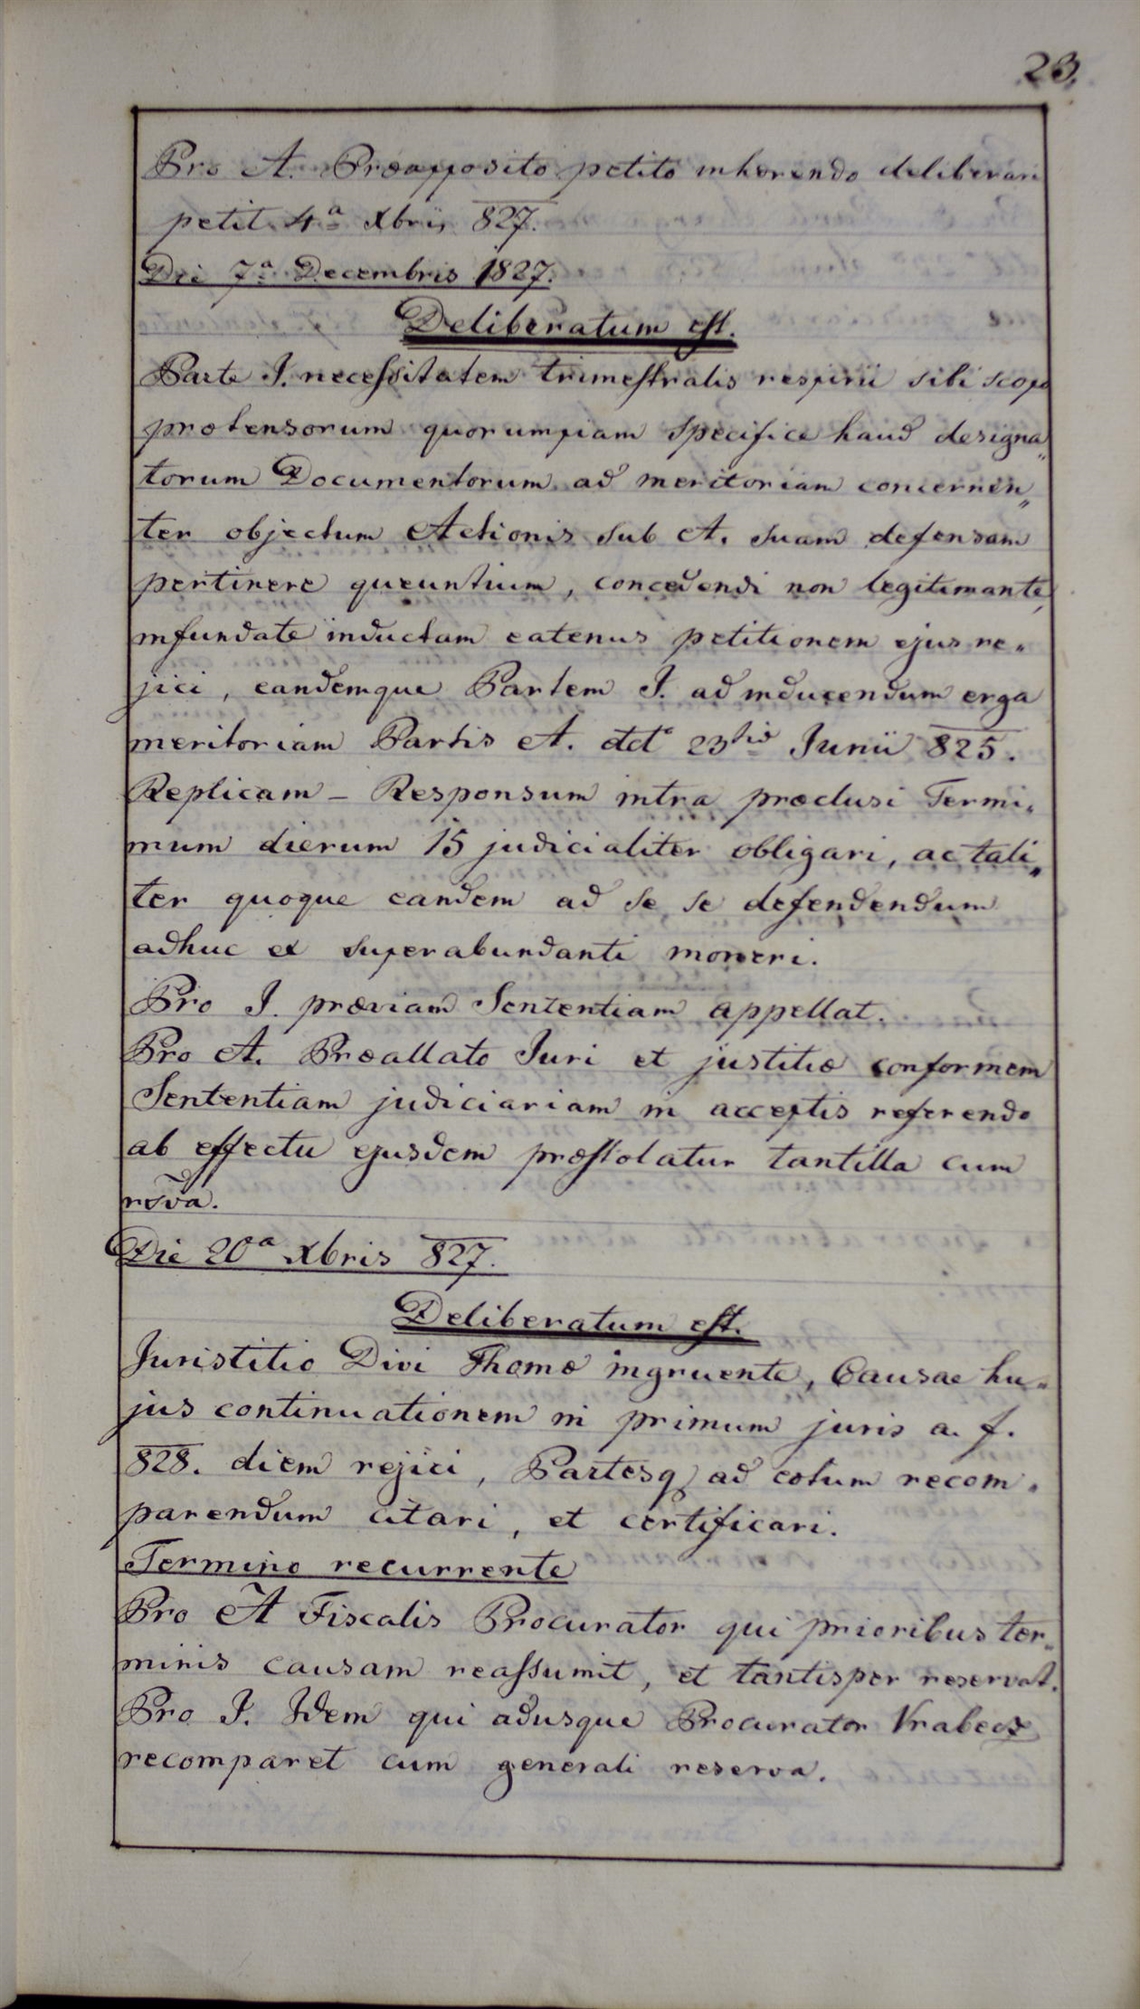 23.
Pro A. Præapposito petito inhærendo deliberari
petit 4ª Xbris 827.
Die 7ª Decembris 1827.
Deliberatum est.
Parte I. necessitatem trimestralis respirii sibi scopo
protensorum quorumpiam specifice haud designa„
torum Documentorum ad meritoriam concernen„
ter objectum Actionis sub A. suam defensam
pertinere queuntium, concedendi non legitimante,
infundate inductam eatenus petitionem ejus re„
jici, eandemque Partem I. ad inducendum erga
meritoriam Partis A. ddto 23tio Junii 825.
Replicam – Responsum intra præclusi Termi„
num dierum 15 judicialiter obligari, ac tali„
ter quoque eandem ad se se defendendum
adhuc ex superabundanti moneri.
Pro I. præviam Sententiam appellat.
Pro A. Præallato Juri et justitiæ conformem
Sententiam judiciariam in acceptis referendo
ab effectu ejusdem præstolatur tantilla cum
rsva.
Die 20ª Xbris 827.
Deliberatum est.
Juristitio Divi Thomæ ingruente, Causae hu„
jus continuationem in primum juris a. f.
828. diem rejici, Partesq ad cotum recom„
parendum citari, et certificari.
Termino recurrente
Pro A Fiscalis Procurator qui prioribus ter„
minis causam reassumit, et tantisper reservat.
Pro I. Idem qui adusque Procurator Vrabecz
recomparet cum generali reserva.